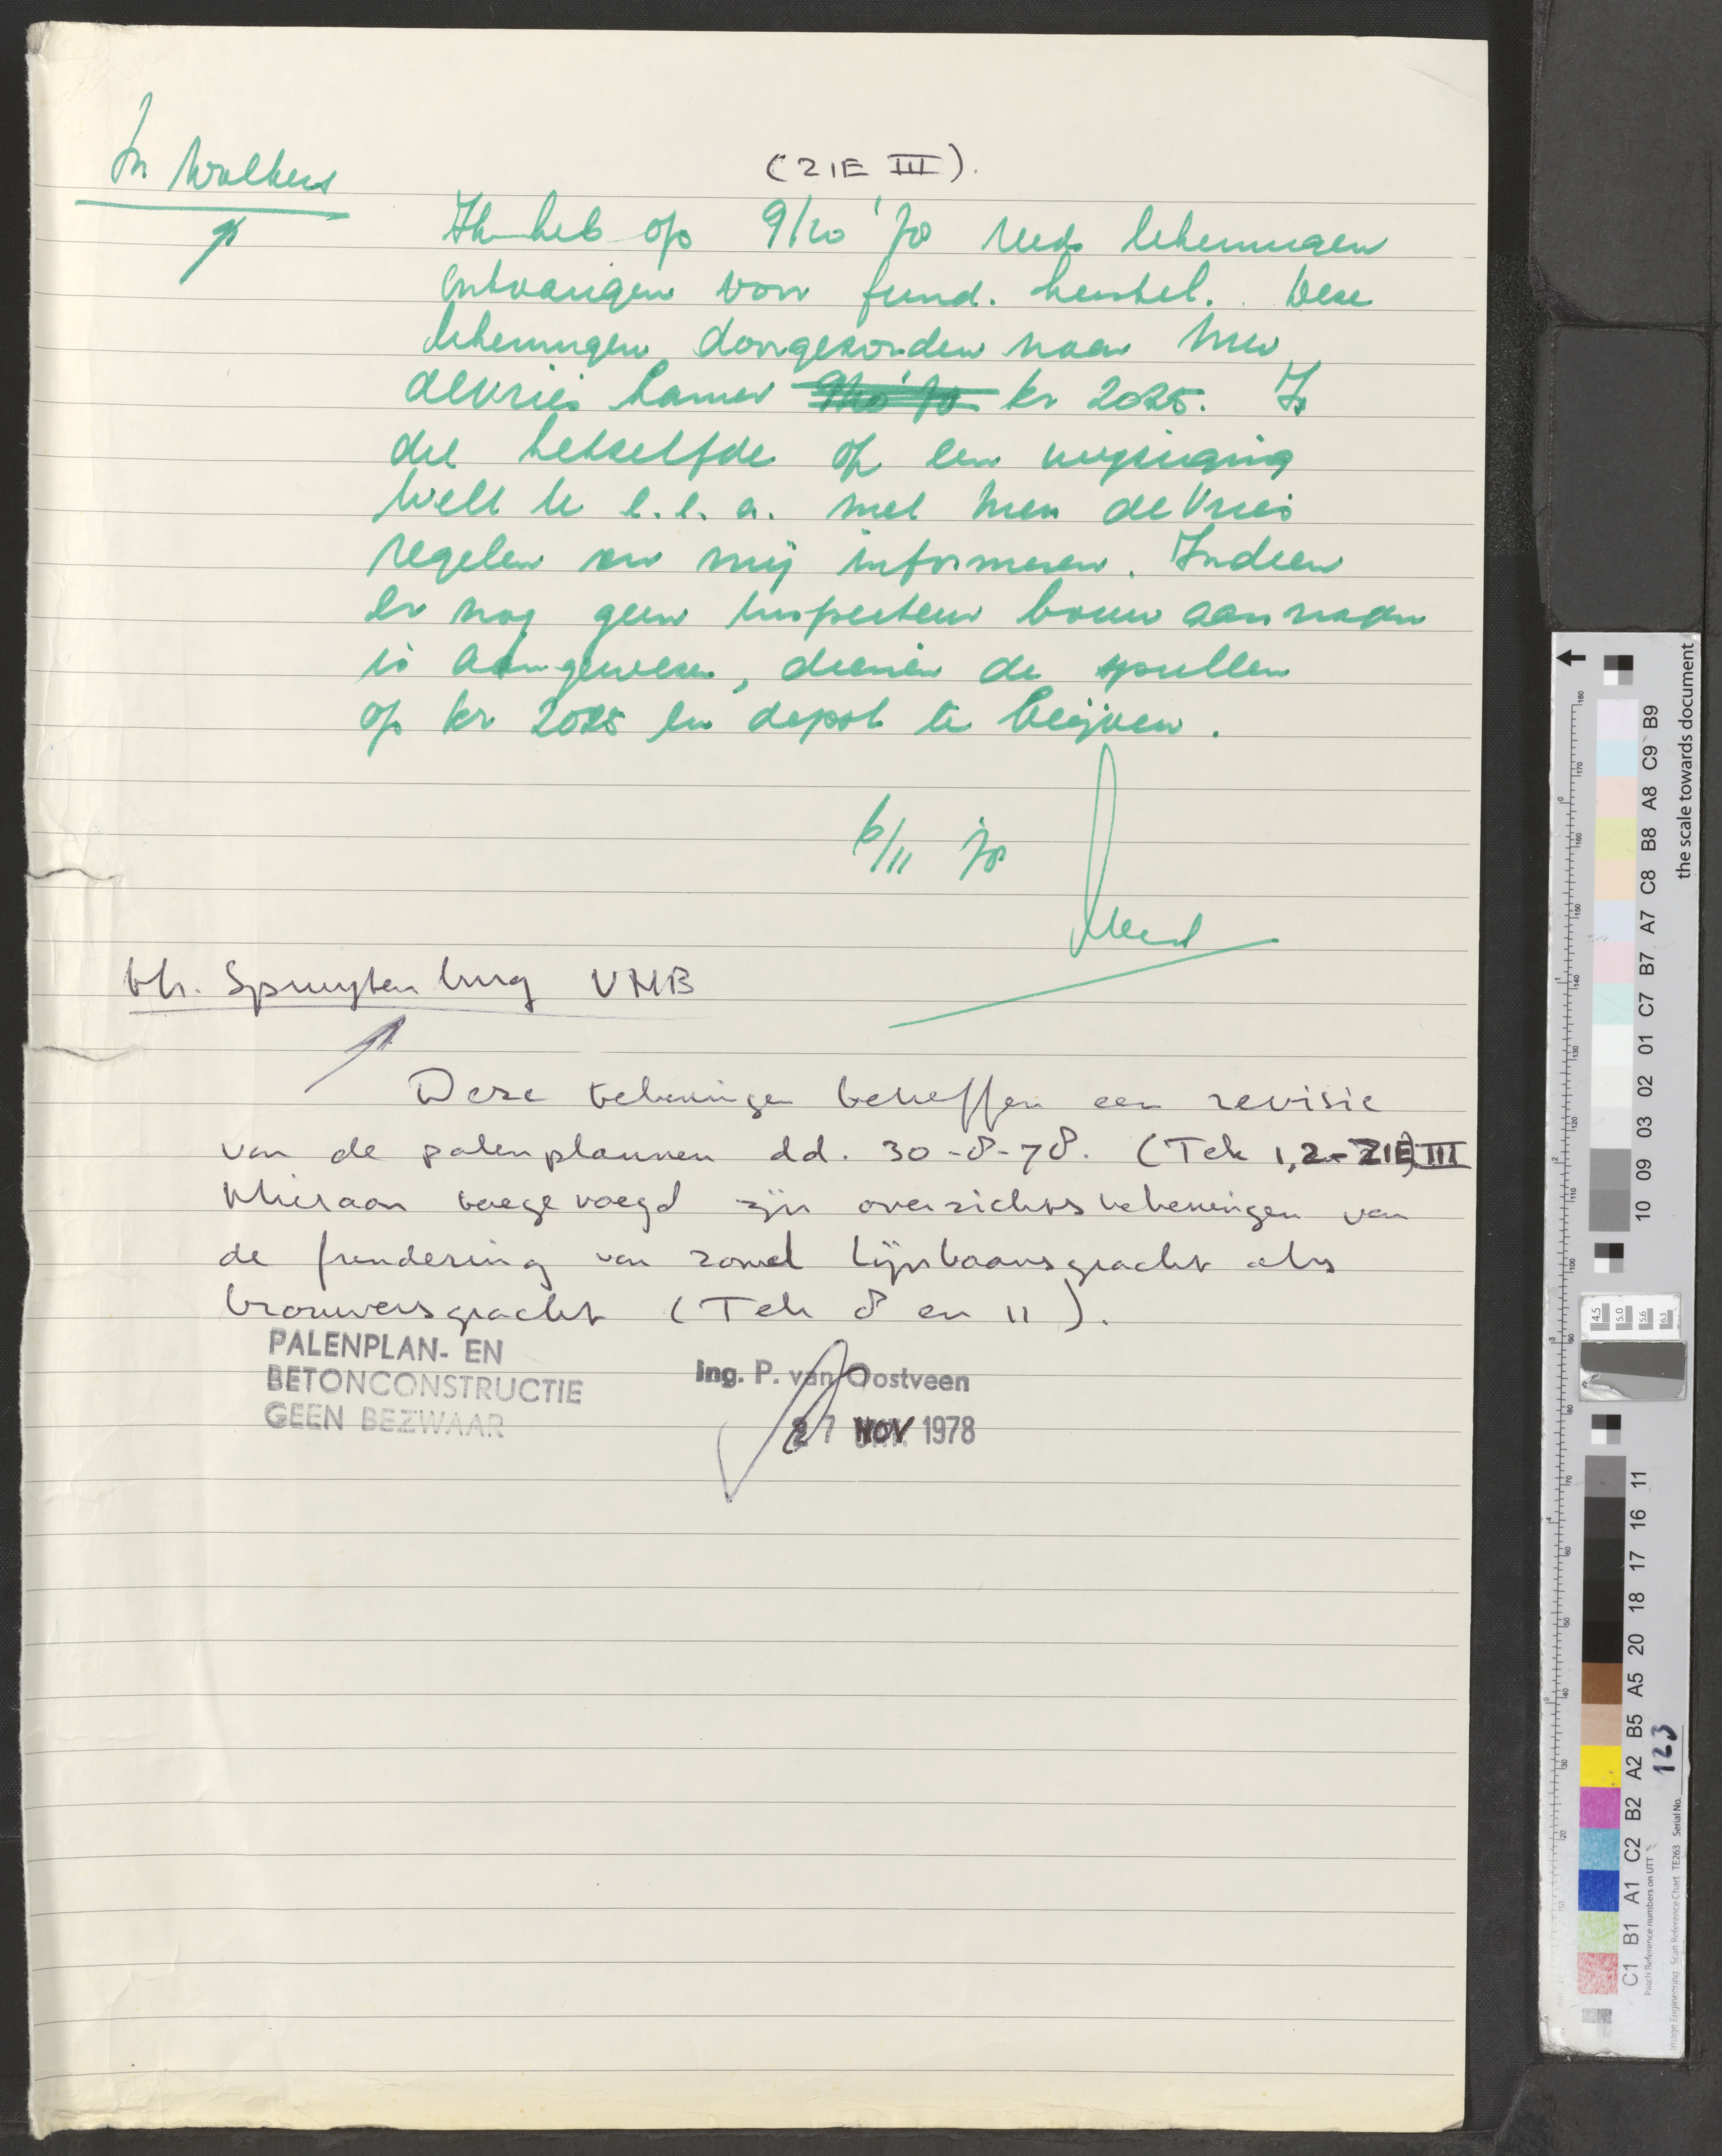 (ZIE III).
Ik heb op 9/10 '78 reeds tekeningen
ontvangen voor fund. herstel. Deze
tekeningen doorgezonden naar mw
de Vries kamer kr 2025. Is
dit hetzelfde of een wijziging
Wilt U e.e.a. met mw de Vries
regelen en mij informeren. Indien
er nog geen inspecteur bouw aannam
is aangewezen, dienen de spullen
op kr 2025 in depot te blijven.
6/11 78
Hr. Spruytenburg VHB
Deze tekeningen betreffen een revisie
van de palenplannen dd. 30-8-78. (Tek 1,2 - ZIE III
Hieraan toegevoegd zijn overzichtstekeningen van
de fundering van zowel Lijnbaansgracht als
Brouwersgracht (Tek 8 en 11).
PALENPLAN- EN
BETONCONSTRUCTIE
GEEN BEZWAAR
Ing. P. van Oostveen
27 NOV 1978
the scale towards document
B9 C9 A8 B8 C8 A7 B7 C7 01 02 03 09 10
11 16 17 18 20 A5 B5 A2 B2 C2 A1 B1 C1
Image Engineering Scan Reference Chart TE263 Serial No. 123
Patch Reference numbers on UTT